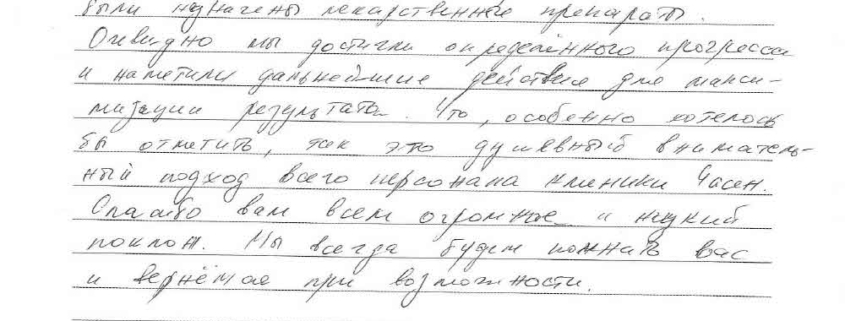 были назначены лекарственные препараты.
Очевидно мы достигли определённого прогресса
и наметили дальнейшие действия для макси-
мизации результата. Что, особенно хотелось
бы отметить, так это душевный вниматель-
ный подход всего персонала клиники Часен.
Спасибо вам всем огромное и низкий
поклон. Мы всегда будем помнить вас
и вернёмся при возможности.